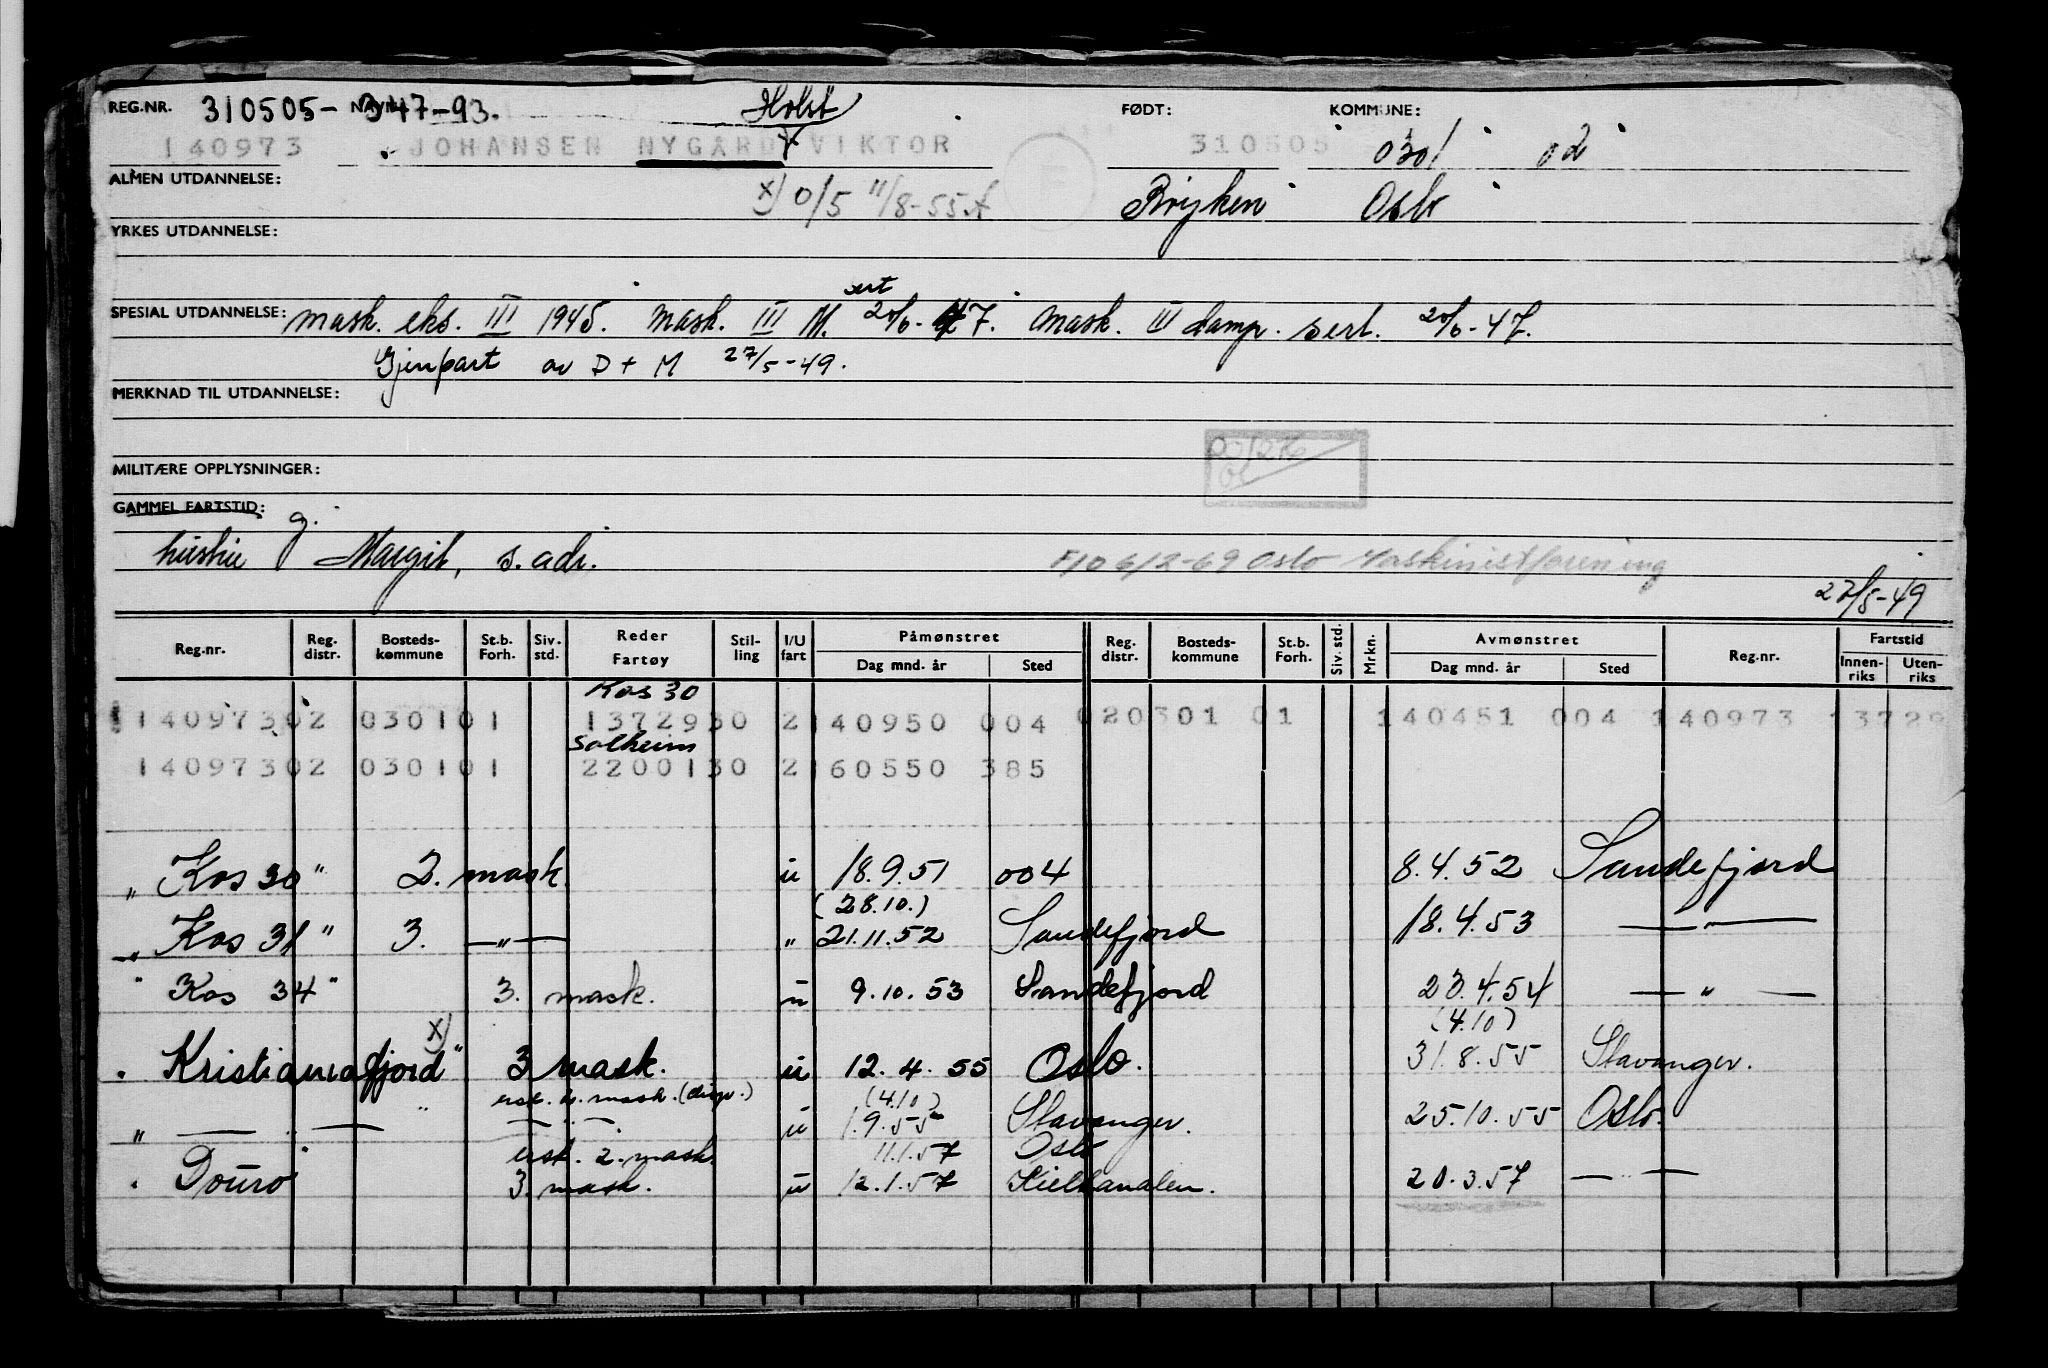 REG.NR. 310505- NAVN: 347-93. Holst FØDT: KOMMUNE:
140973 JOHANSEN NYGÅRD VIKTOR 310505 0301 02
ALMEN UTDANNELSE: x) 0/5 11/8-55 Oslo
YRKES UTDANNELSE:
SPESIAL UTDANNELSE: mask. eks. III 1945. mask. III M. sert 20/6-47. mask. III damp. sert. 20/6-47.
Gjenpart av D + M 27/5-49.
MERKNAD TIL UTDANNELSE:
MILITÆRE OPPLYSNINGER:
GAMMEL FARTSTID:
hustru g. Margit, s. adr. 6/2-69 Oslo Maskinistforening
27/5-49
Reg.nr. Reg. distr. Bosteds-kommune St.b. Forh. Siv. std. Reder Fartøy Stil-ling I/U fart Påmønstret Dag mnd. år Sted Reg. distr. Bosteds-kommune St.b. Forh. Siv. std. Mrkn. Avmønstret Dag mnd. år Sted Reg.nr. Fartstid Innen-riks Uten-riks
Kos 30
140973 02 0301 01 13729 30 2 140950 004 02 0301 01 140451 004 140973 13729
Solheim
140973 02 0301 01 22001 30 2 160550 385
" Kos 30 " 2. mask. u 18.9.51 004 8.4.52 Sandefjord
(28.10.)
" Kos 31 " 3. — " — " 21.11.52 Sandefjord 18.4.53 — " —
" Kos 34 " 3. mask. u 9.10.53 Sandefjord 23.4.54 — " —
x) (4.10)
" Kristianiafjord " 3 mask. u 12.4.55 Oslo. 31.8.55 Stavanger.
mask. (disp.) (4.10)
" — " — — " — u 1.9.55 Stavanger. 25.10.55 Oslo.
2. mask. 11.1.57 Oslo
" Douro " 3. mask. u 12.1.57 Kielkanalen. 20.3.57 — " —